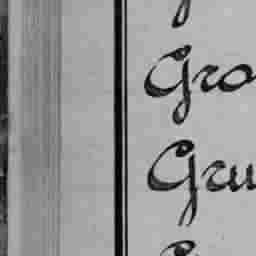 Gro
Gru